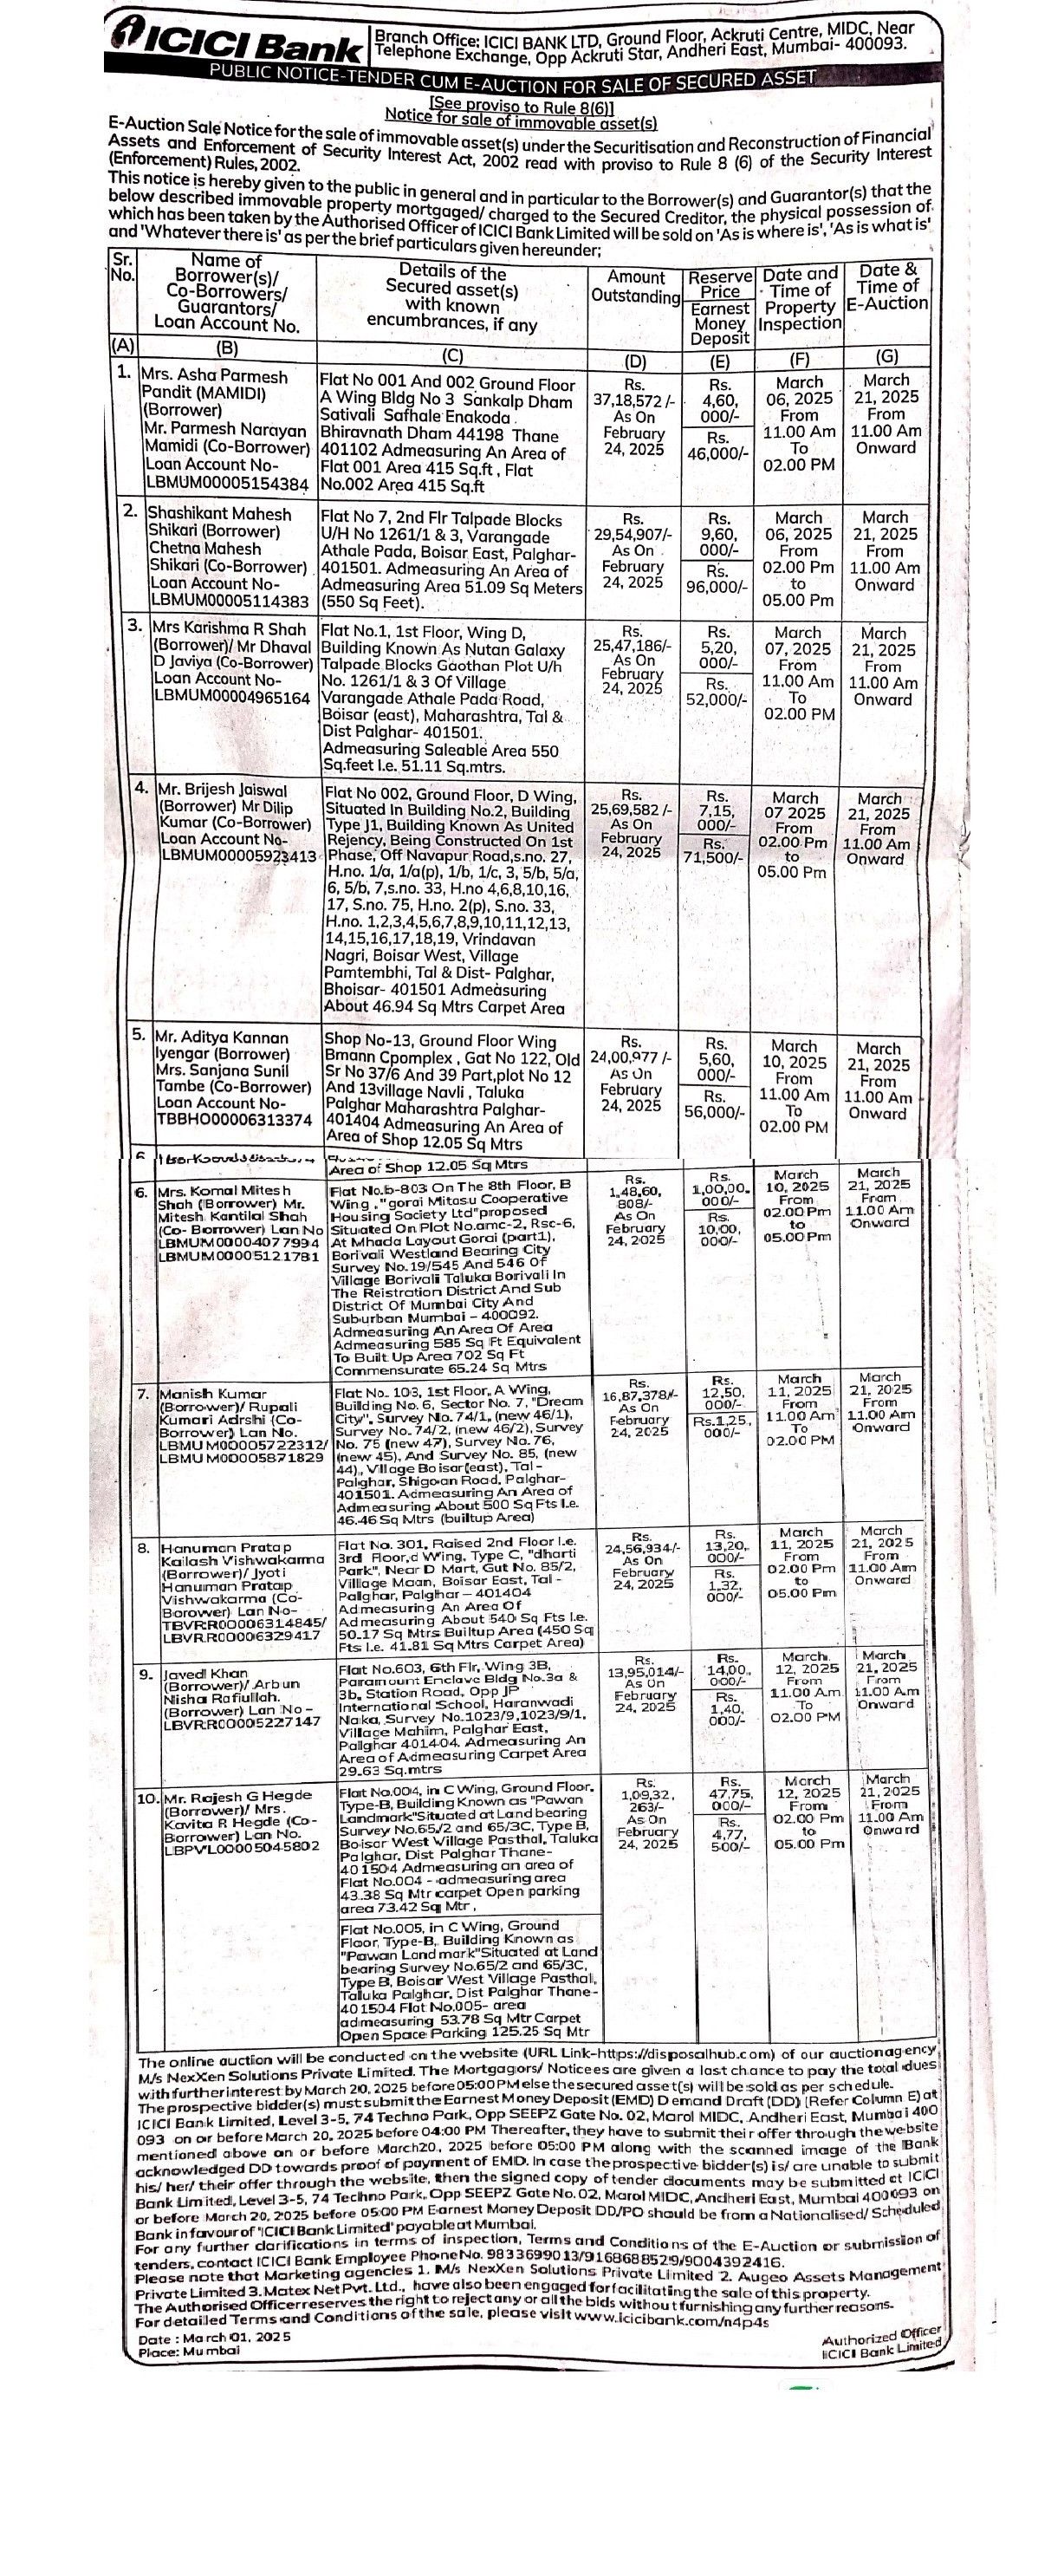 ICICI Bank
Branch Office: ICICI BANK LTD, Ground Floor, Ackruti Centre, MIDC, Near
Telephone Exchange, Opp Ackruti Star, Andheri East, Mumbai- 400093.
PUBLIC NOTICE-TENDER CUM E-AUCTION FOR SALE OF SECURED ASSET
[See proviso to Rule 8(6)]
Notice for sale of immovable asset(s)
E-Auction Sale Notice for the sale of immovable asset(s) under the Securitisation and Reconstruction of Financial
Assets and Enforcement of Security Interest Act, 2002 read with proviso to Rule 8 (6) of the Security Interest
(Enforcement) Rules, 2002.
This notice is hereby given to the public in general and in particular to the Borrower(s) and Guarantor(s) that the
below described immovable property mortgaged/ charged to the Secured Creditor, the physical possession of
which has been taken by the Authorised Officer of ICICI Bank Limited will be sold on 'As is where is', 'As is what is'
and 'Whatever there is' as per the brief particulars given hereunder;
Sr.
No.
Name of
Borrower(s)/
Co-Borrowers/
Guarantors/
Loan Account No.
Details of the
Secured asset(s)
with known
encumbrances, if any
Amount
Outstanding
Reserve
Price
Earnest
Money
Deposit
Date and
Time of
Property
Inspection
Date &
Time of
E-Auction
(A)
(B)
(C)
(D)
(E)
(F)
(G)
1.
Mrs. Asha Parmesh
Pandit (MAMIDI)
(Borrower)
Mr. Parmesh Narayan
Mamidi (Co-Borrower)
Loan Account No-
LBMUM00005154384
Flat No 001 And 002 Ground Floor
A Wing Bldg No 3 Sankalp Dham
Sativali Safhale Enakoda
Bhiravnath Dham 44198 Thane
401102 Admeasuring An Area of
Flat 001 Area 415 Sq.ft , Flat
No.002 Area 415 Sq.ft
Rs.
37,18,572 /-
As On
February
24, 2025
Rs.
4,60,
000/-
Rs.
46,000/-
March
06, 2025
From
11.00 Am
To
02.00 PM
March
21, 2025
From
11.00 Am
Onward
2.
Shashikant Mahesh
Shikari (Borrower)
Chetna Mahesh
Shikari (Co-Borrower)
Loan Account No-
LBMUM00005114383
Flat No 7, 2nd Flr Talpade Blocks
U/H No 1261/1 & 3, Varangade
Athale Pada, Boisar East, Palghar-
401501. Admeasuring An Area of
Admeasuring Area 51.09 Sq Meters
(550 Sq Feet).
Rs.
29,54,907/-
As On
February
24, 2025
Rs.
9,60,
000/-
Rs.
96,000/-
March
06, 2025
From
02.00 Pm
to
05.00 Pm
March
21, 2025
From
11.00 Am
Onward
3.
Mrs Karishma R Shah
(Borrower)/ Mr Dhaval
D Javiya (Co-Borrower)
Loan Account No-
LBMUM00004965164
Flat No.1, 1st Floor, Wing D,
Building Known As Nutan Galaxy
Talpade Blocks Gaothan Plot U/h
No. 1261/1 & 3 Of Village
Varangade Athale Pada Road,
Boisar (east), Maharashtra, Tal &
Dist Palghar- 401501.
Admeasuring Saleable Area 550
Sq.feet I.e. 51.11 Sq.mtrs.
Rs.
25,47,186/-
As On
February
24, 2025
Rs.
5,20,
000/-
Rs.
52,000/-
March
07, 2025
From
11.00 Am
To
02.00 PM
March
21, 2025
From
11.00 Am
Onward
4.
Mr. Brijesh Jaiswal
(Borrower) Mr Dilip
Kumar (Co-Borrower)
Loan Account No-
LBMUM00005923413
Flat No 002, Ground Floor, D Wing,
Situated In Building No.2, Building
Type J1, Building Known As United
Rejency, Being Constructed On 1st
Phase, Off Navapur Road,s.no. 27,
H.no. 1/a, 1/a(p), 1/b, 1/c, 3, 5/b, 5/a,
6, 5/b, 7,s.no. 33, H.no 4,6,8,10,16,
17, S.no. 75, H.no. 2(p), S.no. 33,
H.no. 1,2,3,4,5,6,7,8,9,10,11,12,13,
14,15,16,17,18,19, Vrindavan
Nagri, Boisar West, Village
Pamtembhi, Tal & Dist- Palghar,
Bhoisar- 401501 Admeasuring
About 46.94 Sq Mtrs Carpet Area
Rs.
25,69,582 /-
As On
February
24, 2025
Rs.
7,15,
000/-
Rs.
71,500/-
March
07 2025
From
02.00 Pm
to
05.00 Pm
March
21, 2025
From
11.00 Am
Onward
5.
Mr. Aditya Kannan
Iyengar (Borrower)
Mrs. Sanjana Sunil
Tambe (Co-Borrower)
Loan Account No-
TBBHO00006313374
Shop No-13, Ground Floor Wing
Bmann Cpomplex , Gat No 122, Old
Sr No 37/6 And 39 Part,plot No 12
And 13village Navli , Taluka
Palghar Maharashtra Palghar-
401404 Admeasuring An Area of
Area of Shop 12.05 Sq Mtrs
Rs.
24,00,977 /-
As On
February
24, 2025
Rs.
5,60,
000/-
Rs.
56,000/-
March
10, 2025
From
11.00 Am
To
02.00 PM
March
21, 2025
From
11.00 Am
Onward
Area of Shop 12.05 Sq Mtrs
6.
Mrs. Komal Mitesh
Shah (Borrower) Mr.
Mitesh Kantilal Shah
(Co- Borrower) Lan No
LBMUM00004077994
LBMUM00005121781
Flat No.b-803 On The 8th Floor, B
Wing ,"gorai Mitasu Cooperative
Housing Society Ltd"proposed
Situated On Plot No.amc-2, Rsc-6,
At Mhada Layout Gorai (part1),
Borivali Westland Bearing City
Survey No.19/545 And 546 Of
Village Borivali Taluka Borivali In
The Reistration District And Sub
District Of Mumbai City And
Suburban Mumbai - 400092.
Admeasuring An Area Of Area
Admeasuring 585 Sq Ft Equivalent
To Built Up Area 702 Sq Ft
Commensurate 65.24 Sq Mtrs
Rs.
1,48,60,
808/-
As On
February
24, 2025
Rs.
1,00,00,
000/-
Rs.
10,00,
000/-
March
10, 2025
From
02.00 Pm
to
05.00 Pm
March
21, 2025
From
11.00 Am
Onward
7.
Manish Kumar
(Borrower)/ Rupali
Kumari Adrshi (Co-
Borrower) Lan No.
LBMUM00005722312/
LBMUM00005871829
Flat No. 103, 1st Floor, A Wing,
Building No. 6, Sector No. 7, "Dream
City", Survey No. 74/1, (new 46/1),
Survey No. 74/2, (new 46/2), Survey
No. 75 (new 47), Survey No. 76,
(new 45), And Survey No. 85, (new
44), Village Boisar(east), Tal -
Palghar, Shigoan Road, Palghar-
401501. Admeasuring An Area of
Admeasuring About 500 Sq Fts I.e.
46.46 Sq Mtrs (builtup Area)
Rs.
16,87,378/-
As On
February
24, 2025
Rs.
12,50,
000/-
Rs.1,25,
000/-
March
11, 2025
From
11.00 Am
To
02.00 PM
March
21, 2025
From
11.00 Am
Onward
8.
Hanuman Pratap
Kailash Vishwakarma
(Borrower)/ Jyoti
Hanuman Pratap
Vishwakarma (Co-
Borower) Lan No-
TBVRR00006314845/
LBVRR00006329417
Flat No. 301, Raised 2nd Floor I.e.
3rd Floor,d Wing, Type C, "dharti
Park", Near D Mart, Gut No. 85/2,
Village Maan, Boisar East, Tal -
Palghar, Palghar - 401404
Admeasuring An Area Of
Admeasuring About 540 Sq Fts I.e.
50.17 Sq Mtrs Builtup Area (450 Sq
Fts I.e. 41.81 Sq Mtrs Carpet Area)
Rs.
24,56,934/-
As On
February
24, 2025
Rs.
13,20,
000/-
Rs.
1,32,
000/-
March
11, 2025
From
02.00 Pm
to
05.00 Pm
March
21, 2025
From
11.00 Am
Onward
9.
Javed Khan
(Borrower)/ Arbun
Nisha Rafiullah.
(Borrower) Lan No -
LBVRR00005227147
Flat No.603, 6th Flr, Wing 3B,
Paramount Enclave Bldg No.3a &
3b, Station Road, Opp JP
International School, Haranwadi
Naka, Survey No.1023/9,1023/9/1,
Village Mahim, Palghar East,
Palghar 401404. Admeasuring An
Area of Admeasuring Carpet Area
29.63 Sq.mtrs
Rs.
13,95,014/-
As On
February
24, 2025
Rs.
14,00,
000/-
Rs.
1,40,
000/-
March
12, 2025
From
11.00 Am
To
02.00 PM
March
21, 2025
From
11.00 Am
Onward
10.
Mr. Rajesh G Hegde
(Borrower)/ Mrs.
Kavita R Hegde (Co-
Borrower) Lan No.
LBPVL00005045802
Flat No.004, in C Wing, Ground Floor,
Type-B, Building Known as "Pawan
Landmark"Situated at Land bearing
Survey No.65/2 and 65/3C, Type B,
Boisar West Village Pasthal, Taluka
Palghar, Dist Palghar Thane-
401504 Admeasuring an area of
Flat No.004 - admeasuring area
43.38 Sq Mtr carpet Open parking
area 73.42 Sq Mtr ,
Flat No.005, in C Wing, Ground
Floor, Type-B, Building Known as
"Pawan Landmark"Situated at Land
bearing Survey No.65/2 and 65/3C,
Type B, Boisar West Village Pasthal,
Taluka Palghar, Dist Palghar Thane-
401504 Flat No.005- area
admeasuring 53.78 Sq Mtr Carpet
Open Space Parking 125.25 Sq Mtr
Rs.
1,09,32,
263/-
As On
February
24, 2025
Rs.
47,75,
000/-
Rs.
4,77,
500/-
March
12, 2025
From
02.00 Pm
to
05.00 Pm
March
21, 2025
From
11.00 Am
Onward
The online auction will be conducted on the website (URL Link-https://disposalhub.com) of our auction agency
M/s NexXen Solutions Private Limited. The Mortgagors/ Noticees are given a last chance to pay the total dues
with further interest by March 20, 2025 before 05:00 PM else the secured asset(s) will be sold as per schedule.
The prospective bidder(s) must submit the Earnest Money Deposit (EMD) Demand Draft (DD) (Refer Column E) at
ICICI Bank Limited, Level 3-5, 74 Techno Park, Opp SEEPZ Gate No. 02, Marol MIDC, Andheri East, Mumbai 400
093 on or before March 20, 2025 before 04:00 PM Thereafter, they have to submit their offer through the website
mentioned above on or before March20, 2025 before 05:00 PM along with the scanned image of the Bank
acknowledged DD towards proof of payment of EMD. In case the prospective bidder(s) is/ are unable to submit
his/ her/ their offer through the website, then the signed copy of tender documents may be submitted at ICICI
Bank Limited, Level 3-5, 74 Techno Park, Opp SEEPZ Gate No. 02, Marol MIDC, Andheri East, Mumbai 400093 on
or before March 20, 2025 before 05:00 PM Earnest Money Deposit DD/PO should be from a Nationalised/ Scheduled
Bank in favour of 'ICICI Bank Limited' payable at Mumbai.
For any further clarifications in terms of inspection, Terms and Conditions of the E-Auction or submission of
tenders, contact ICICI Bank Employee Phone No. 9833699013/9168688529/9004392416.
Please note that Marketing agencies 1. M/s NexXen Solutions Private Limited 2. Augeo Assets Management
Private Limited 3. Matex Net Pvt. Ltd., have also been engaged for facilitating the sale of this property.
The Authorised Officer reserves the right to reject any or all the bids without furnishing any further reasons.
For detailed Terms and Conditions of the sale, please visit www.icicibank.com/n4p4s
Date : March 01, 2025
Place: Mumbai
Authorized Officer
ICICI Bank Limited